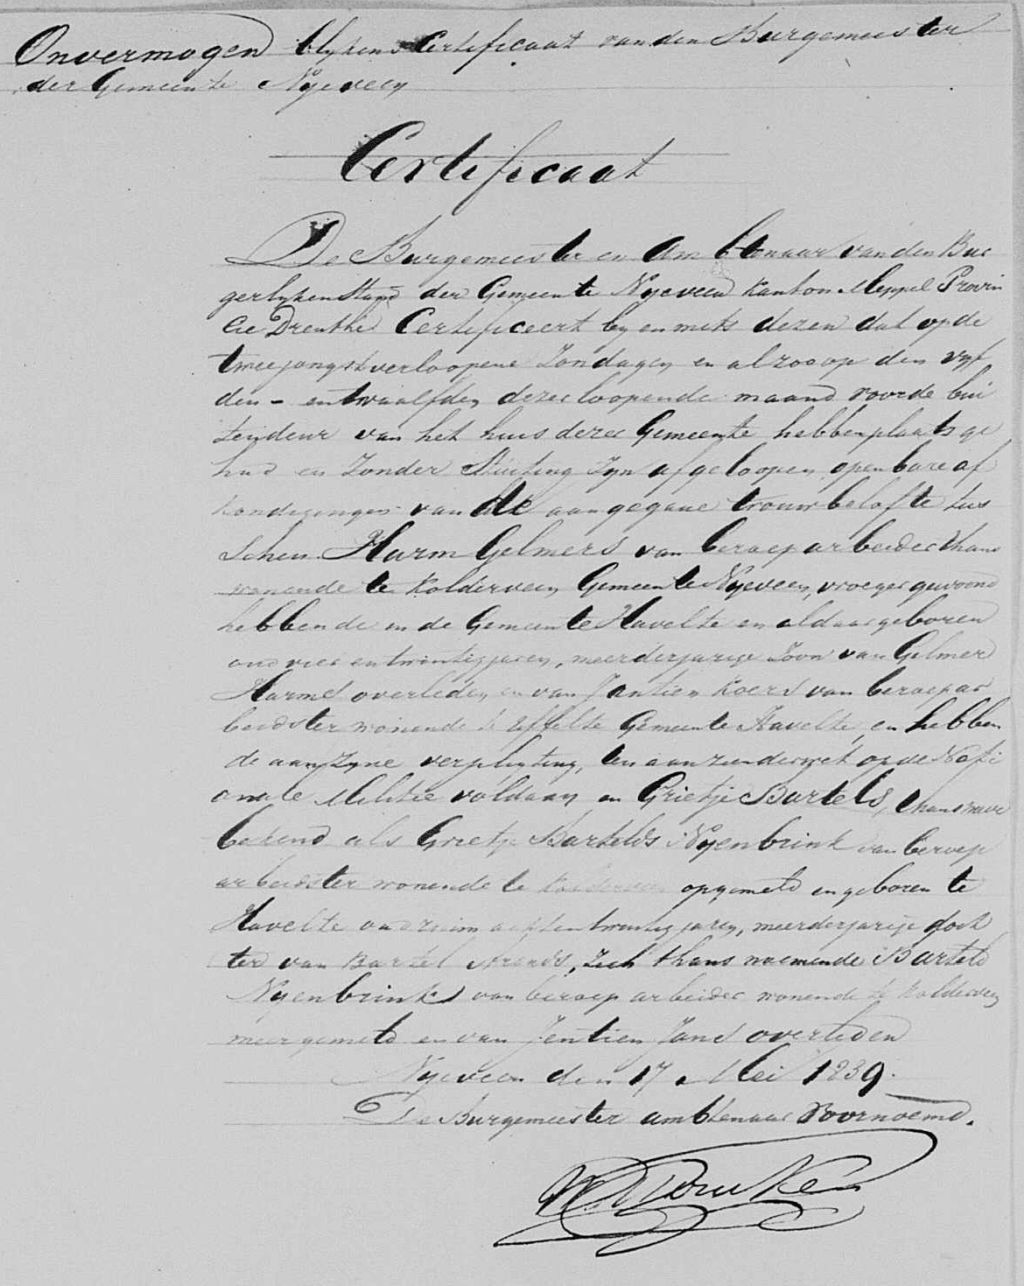 Onvermogen blykens Certificaat van den Burgemeester
der Gemeente Nyeveen
Certificaat
De Burgemeester en Ambtenaar van den Bur
gerlyken Stand der Gemeente Nyeveen Kanton Meppel Provin
cie Drenthe Certificeert by en mits dezen dat op de
twee jongst verloopene Zondagen en alzoo op den vyf
den - en twaalfden dezer loopende maand voor de bui
tendeur van het huis dezer Gemeente hebben plaats ge
had en zonder Stuiting zyn afgeloopen openbare af
kondigingen van de aangegane trouwbelofte tus
schen Harm Gelmers van beroep arbeider thans
wonende te Kolderveen Gemeente Nyeveen, vroeger gewoond
hebbende in de Gemeente Havelte en aldaar geboren
oud vier en twintig jaren, meerderjarige Zoon van Gelmer
Harms overleden en van Jantien Koers van beroep ar
beidster wonende te Uffelte Gemeente Havelte, en hebben
de aan zyne verpligting, ten aanzien der wet op de Nati
onale Militie voldaan en Grietje Bartels, thans meer
bekend als Grietje Bartelds Nyenbrink van beroep
arbeidster wonende te Kolderveen opgemeld en geboren te
Havelte oud ruim acht en twintig jaren, meerderjarige doch
ter van Bartel Arends, zich thans noemende Barteld
Nyenbrink van beroep arbeider wonende te Kolderveen
meergemeld en van Jentien Jans overleden
Nyeveen den 17 Mei 1839.
De Burgemeester ambtenaar Voornoemd.